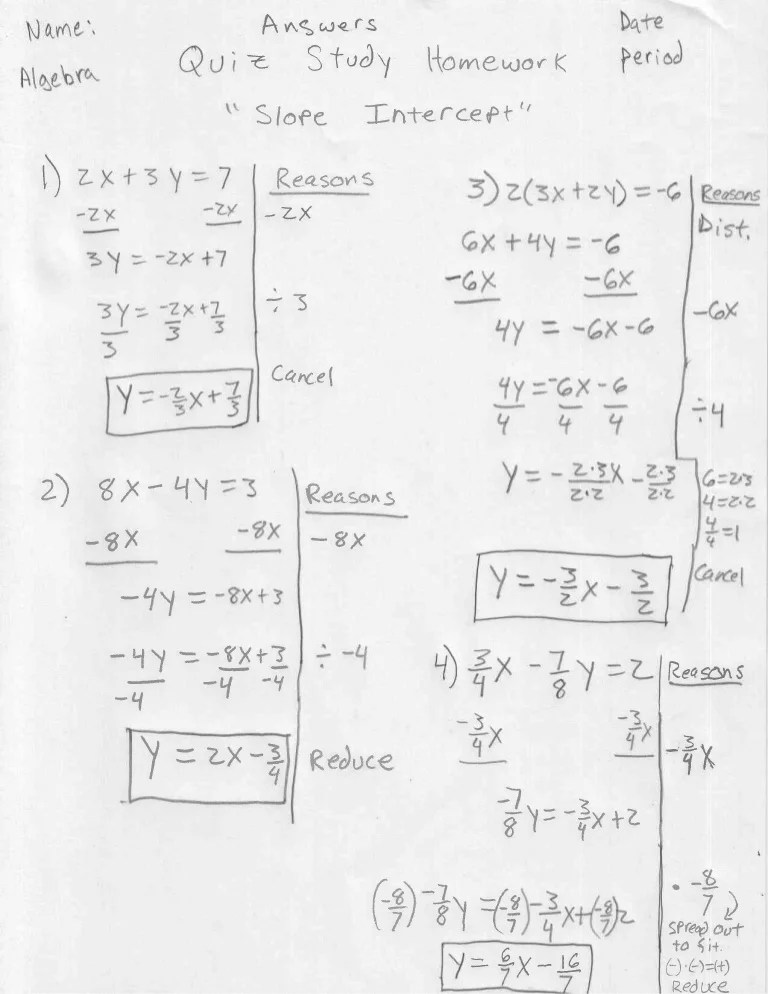 Name: Answers Date
Algebra Quiz Study Homework period
"Slope Intercept"
1) 2x+3y=7 Reasons
-2x -2x -2x
3y = -2x+7
3y/3 = -2x/3+7/3 ÷ 3
y=-2/3x+7/3 Cancel
2) 8x-4y=3 Reasons
-8x -8x -8x
-4y = -8x+3
-4y/-4 = -8x/-4+3/-4 ÷ -4
y = 2x-3/4 Reduce
3) 2(3x+2y) = -6 Reasons
6x+4y = -6 Dist.
-6x -6x
4y = -6x-6 -6x
4y/4 = -6x/4-6/4 ÷4
y = -2·3x/2·2-2·3/2·2 6=2·3
4=2·2
4/4=1
y = -3/2x-3/2 Cancel
4) 3/4x-7/8y=2 Reasons
-3/4x -3/4x -3/4x
-7/8y=-3/4x+2
(-8/7)-7/8y=(-8/7)-3/4x+(-8/7)2 · -8/7
spread out
to fit.
(-)·(-)=(+)
y = 6/7x-16/7 Reduce